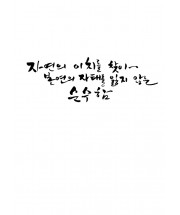 자연의 이치를 찾아
본연의 자태를 잃지 않는
순수함